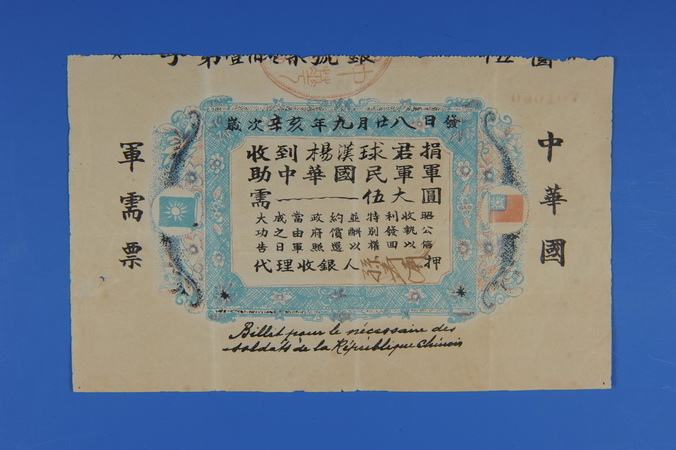 字第壹佰
號
銀
伍
圓
歲次辛亥年九月廿八日發
收到楊漢球君捐
助中華國民軍軍
需一伍大圓
大功告
成之日
當由軍
政府照
約償還
並酬以
特別權
利發回
收執以
昭公信
代理收銀人 押
軍需票
中華國
Billet pour le nécessaire des
soldats de la République Chinois